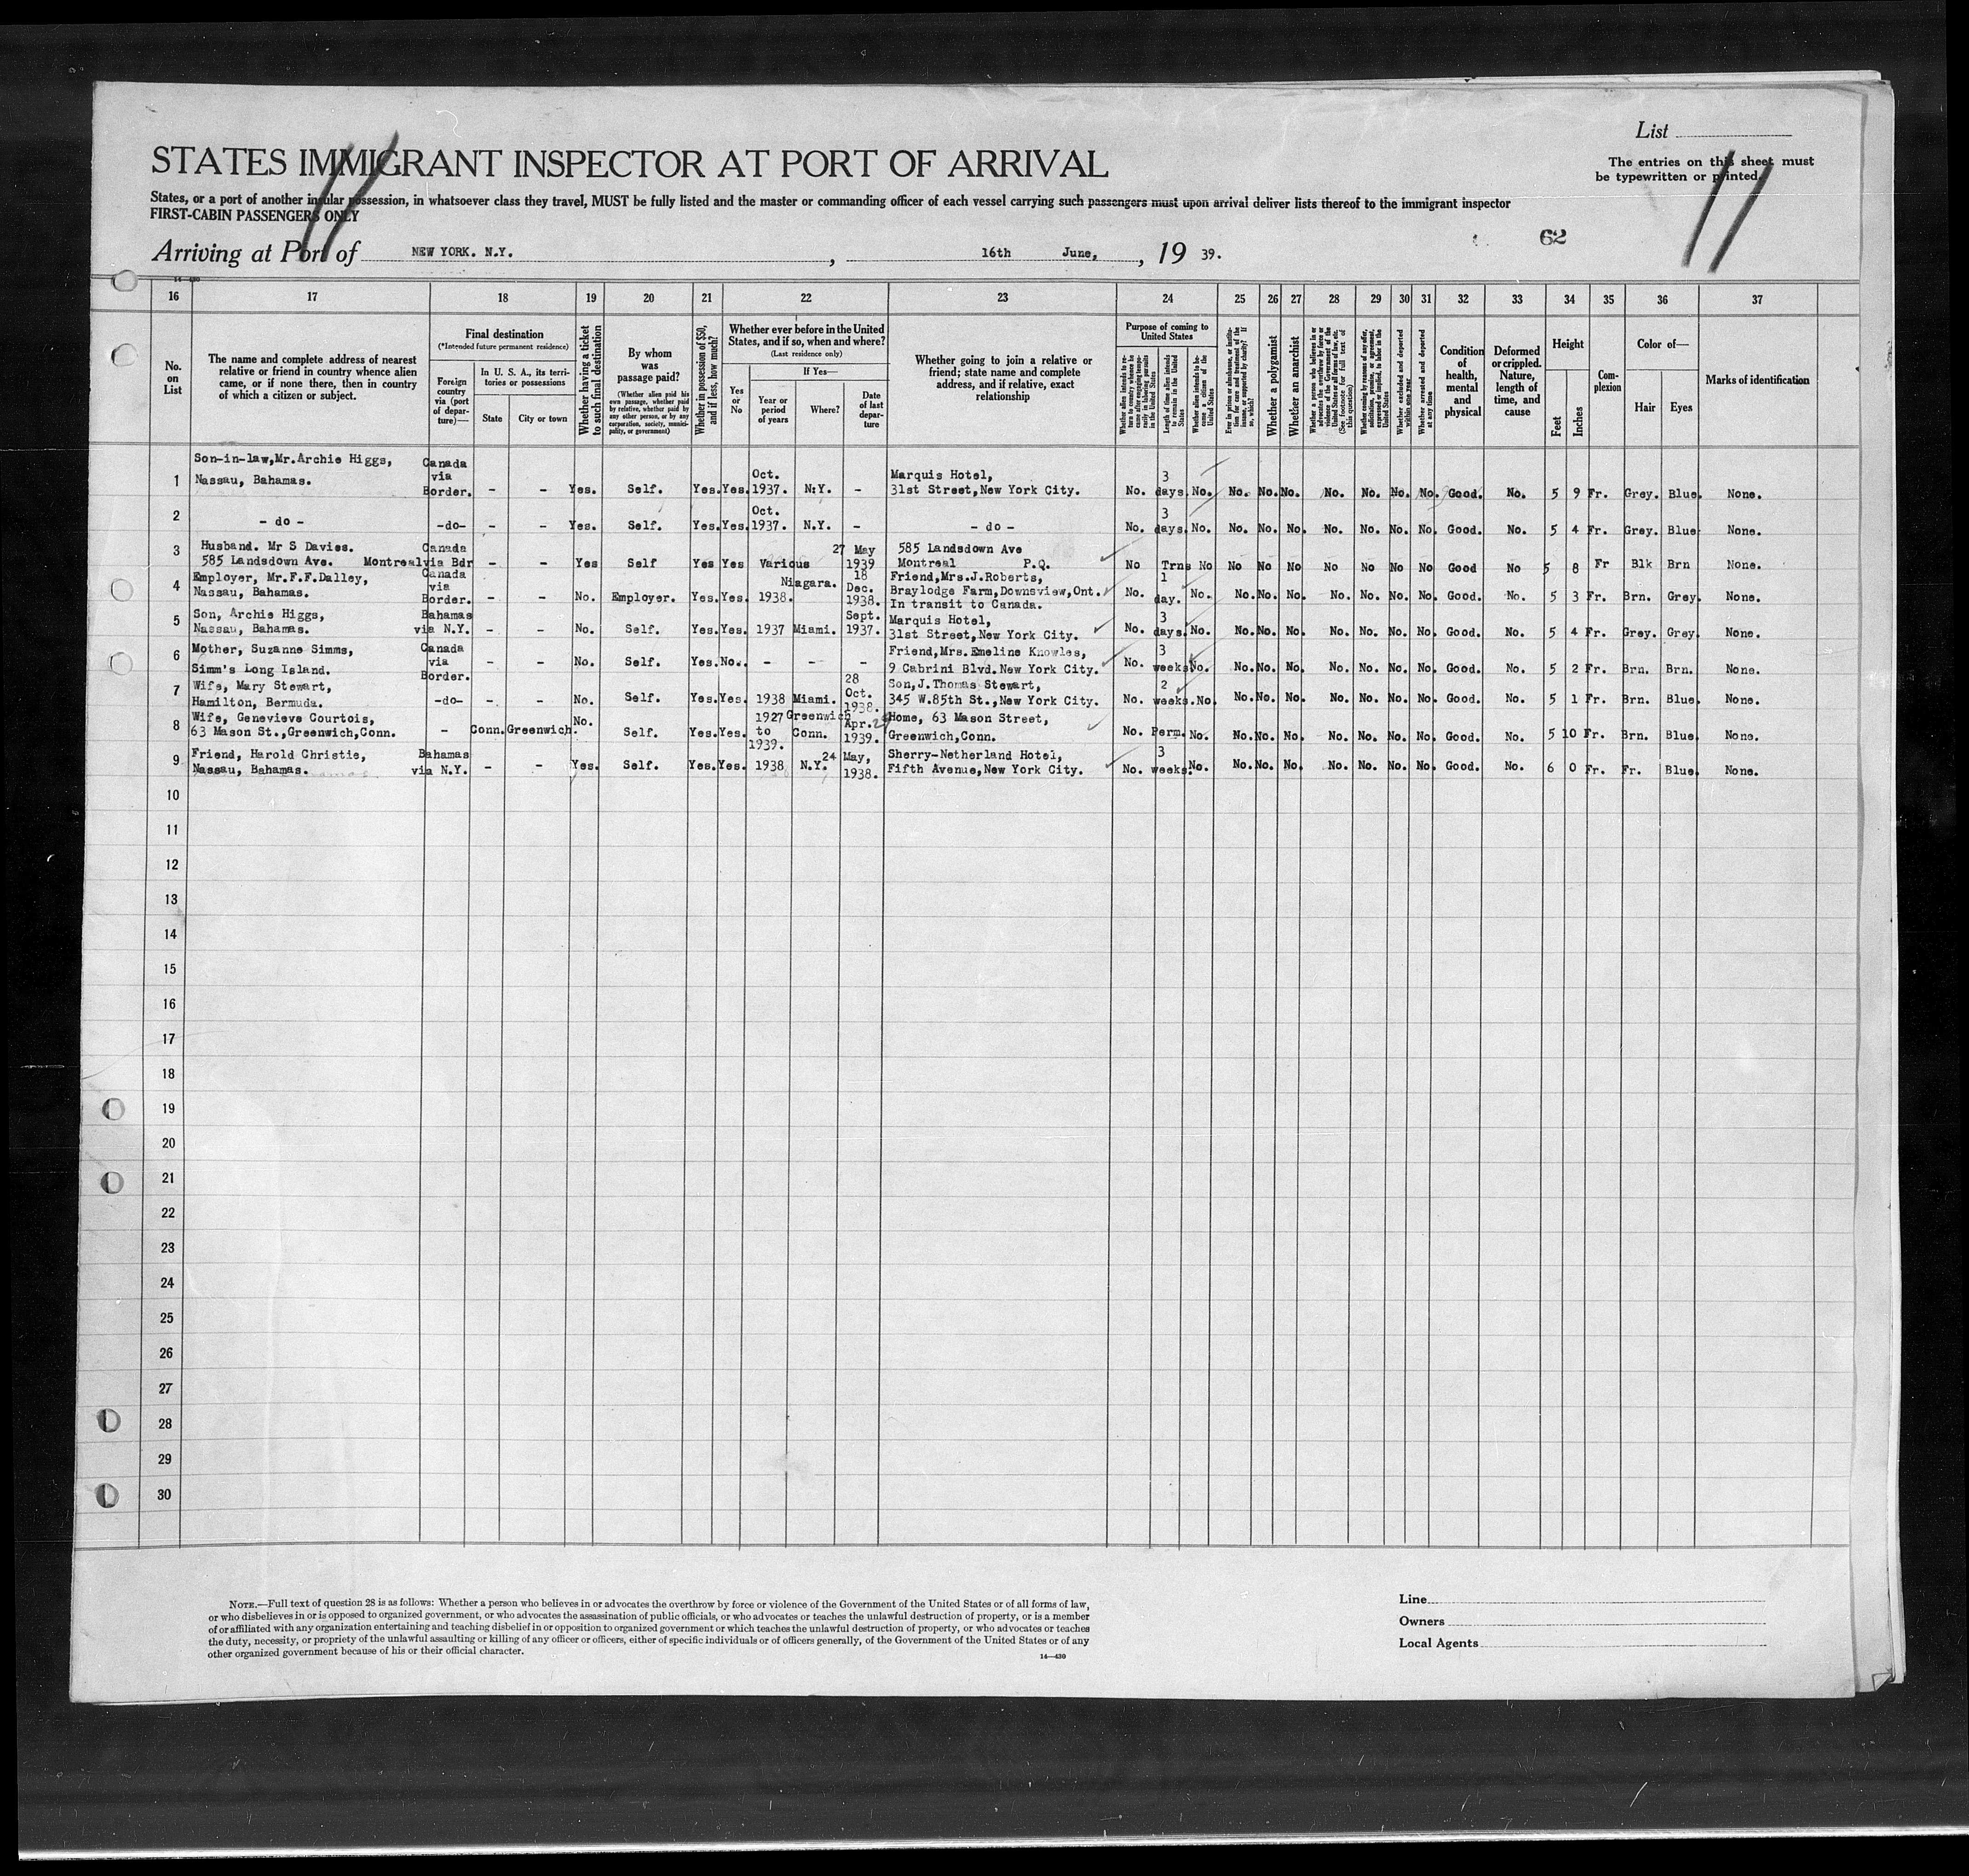 List
STATES IMMIGRANT INSPECTOR AT PORT OF ARRIVAL
The entries on this sheet must
be typewritten or printed.
11
11
States, or a port of another insular possession, in whatsoever class they travel, MUST be fully listed and the master or commanding officer of each vessel carrying such passengers must upon arrival deliver lists thereof to the immigrant inspector
FIRST-CABIN PASSENGERS ONLY
62
Arriving at Port of NEW YORK. N.Y. , 16th June, , 19 39.
16 17 18 19 20 21 22 23 24 25 26 27 28 29 30 31 32 33 34 35 36 37
No. on List
The name and complete address of nearest relative or friend in country whence alien came, or if none there, then in country of which a citizen or subject.
Final destination
(*Intended future permanent residence)
Foreign country via (port of departure)—
In U. S. A., its territories or possessions
State
City or town
Whether having a ticket to such final destination
By whom was passage paid?
(Whether alien paid his own passage, whether paid by relative, whether paid by any other person, or by any corporation, society, municipality, or government)
Whether in possession of $50, and if less, how much?
Whether ever before in the United States, and if so, when and where?
(Last residence only)
Yes or No
If Yes—
Year or period of years
Where?
Date of last departure
Whether going to join a relative or friend; state name and complete address, and if relative, exact relationship
Purpose of coming to United States
Whether alien intends to return to country whence he came after engaging temporarily in laboring pursuits in the United States
Length of time alien intends to remain in the United States
Whether alien intends to become a citizen of the United States
Ever in prison or almshouse, or institution for care and treatment of the insane, or supported by charity? If so, which?
Whether a polygamist
Whether an anarchist
(See footnote for full text of this question)
Whether excluded and deported within one year
Whether arrested and deported at any time
Condition of health, mental and physical
Deformed or crippled. Nature, length of time, and cause
Height
Feet
Inches
Complexion
Color of—
Hair
Eyes
Marks of identification
1 Son-in-law,Mr.Archie Higgs, Nassau, Bahamas. Canada via Border. - - Yes. Self. Yes. Yes. Oct. 1937. N.Y. - Marquis Hotel, 31st Street,New York City. No. 3 days. No. No. No. No. No. No. No. No. Good. No. 5 9 Fr. Grey. Blue. None.
2 - do - -do- - - Yes. Self. Yes. Yes. Oct. 1937. N.Y. - - do - No. 3 days. No. No. No. No. No. No. No. No. Good. No. 5 4 Fr. Grey. Blue None.
3 Husband. Mr S Davies. 585 Landsdown Ave. Montreal Canada via Bdr - - Yes Self Yes Yes Various 27 May 1939 585 Landsdown Ave Montreal P.Q. No Trns No No No No No No No No Good No 5 8 Fr Blk Brn None.
4 Employer, Mr.F.F.Dalley, Nassau, Bahamas. Canada via Border. - - No. Employer. Yes. Yes. 1938. Niagara. 18 Dec. 1938. Friend,Mrs.J.Roberts, Braylodge Farm,Downsview,Ont. In transit to Canada. No. 1 day. No. No. No. No. No. No. No. No. Good. No. 5 3 Fr. Brn. Grey. None.
5 Son, Archie Higgs, Nassau, Bahamas. Bahamas via N.Y. - - No. Self. Yes. Yes. 1937 Miami. Sept. 1937. Marquis Hotel, 31st Street,New York City. No. 3 days. No. No. No. No. No. No. No. No. Good. No. 5 4 Fr. Grey. Grey. None.
6 Mother, Suzanne Simms, Simm's Long Island. Canada via Border. - - No. Self. Yes. No. - - - Friend,Mrs. Emeline Knowles, 9 Cabrini Blvd.New York City. No. 3 weeks No. No. No. No. No. No. No. No. Good. No. 5 2 Fr. Brn. Brn. None.
7 Wife, Mary Stewart, Hamilton, Bermuda. -do- - - No. Self. Yes. Yes. 1938 Miami. 28 Oct. 1938. Son,J.Thomas Stewart, 345 W.85th St.,New York City. No. 2 weeks. No. No. No. No. No. No. No. No. Good. No. 5 1 Fr. Brn. Blue. None.
8 Wife, Genevieve Courtois, 63 Mason St.,Greenwich,Conn. - Conn. Greenwich. No. Self. Yes. Yes. 1927 to 1939. Greenwich Conn. Apr. 1939. Home, 63 Mason Street, Greenwich,Conn. No. Perm. No. No. No. No. No. No. No. No. Good. No. 5 10 Fr. Brn. Blue. None.
9 Friend, Harold Christie, Nassau, Bahamas. Bahamas via N.Y. - - Yes. Self. Yes. Yes. 1938 N.Y. 24 May, 1938. Sherry-Netherland Hotel, Fifth Avenue,New York City. No. 3 weeks. No. No. No. No. No. No. No. No. Good. No. 6 0 Fr. Fr. Blue. None.
10
11
12
13
14
15
16
17
18
19
20
21
22
23
24
25
26
27
28
29
30
NOTE.—Full text of question 28 is as follows: Whether a person who believes in or advocates the overthrow by force or violence of the Government of the United States or of all forms of law,
or who disbelieves in or is opposed to organized government, or who advocates the assassination of public officials, or who advocates or teaches the unlawful destruction of property, or is a member
of or affiliated with any organization entertaining and teaching disbelief in or opposition to organized government or which teaches the unlawful destruction of property, or who advocates or teaches
the duty, necessity, or propriety of the unlawful assaulting or killing of any officer or officers, either of specific individuals or of officers generally, of the Government of the United States or of any
other organized government because of his or their official character.
14—430
Line
Owners
Local Agents